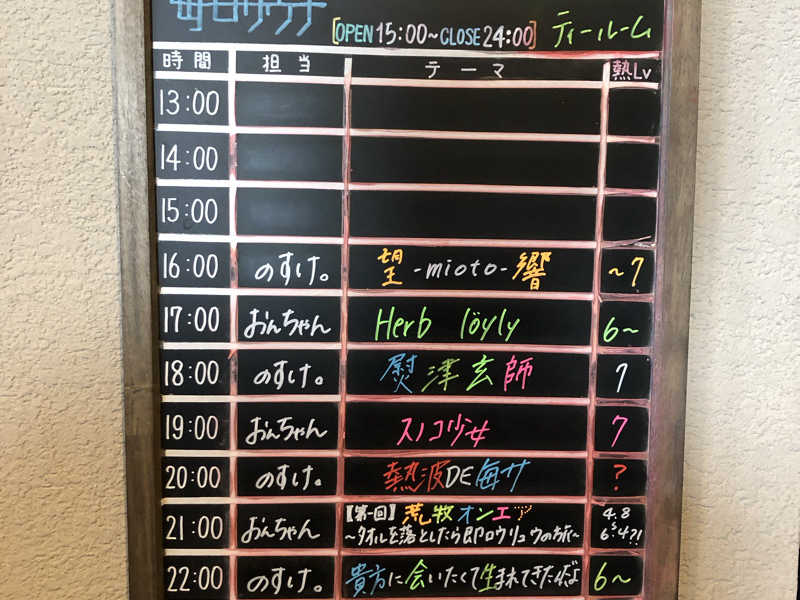 毎日サウナ
[OPEN 15:00~CLOSE 24:00] ティールーム
時間 担当 テーマ 熱Lv
13:00
14:00
15:00
16:00 のすけ。 望-mioto-響 ~7
17:00 おんちゃん Herb löyly 6~
18:00 のすけ。 熨津玄師 7
19:00 おんちゃん スノコ少女 7
20:00 のすけ。 熱波DE毎サ ?
21:00 おんちゃん 【第一回】荒牧オンエア 4.8
~タオルを落としたら即ロウリュウの旅~ 6.4?!
22:00 のすけ。 貴方に会いたくて生まれてきたんだよ 6~